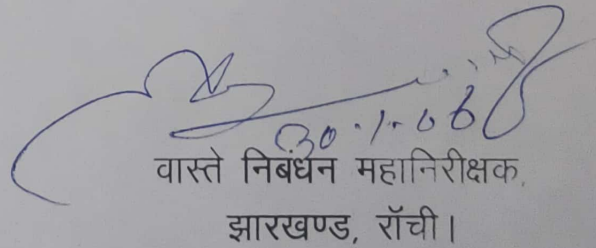 30.1.06
वास्ते निबंधन महानिरीक्षक,
झारखण्ड, राँची।